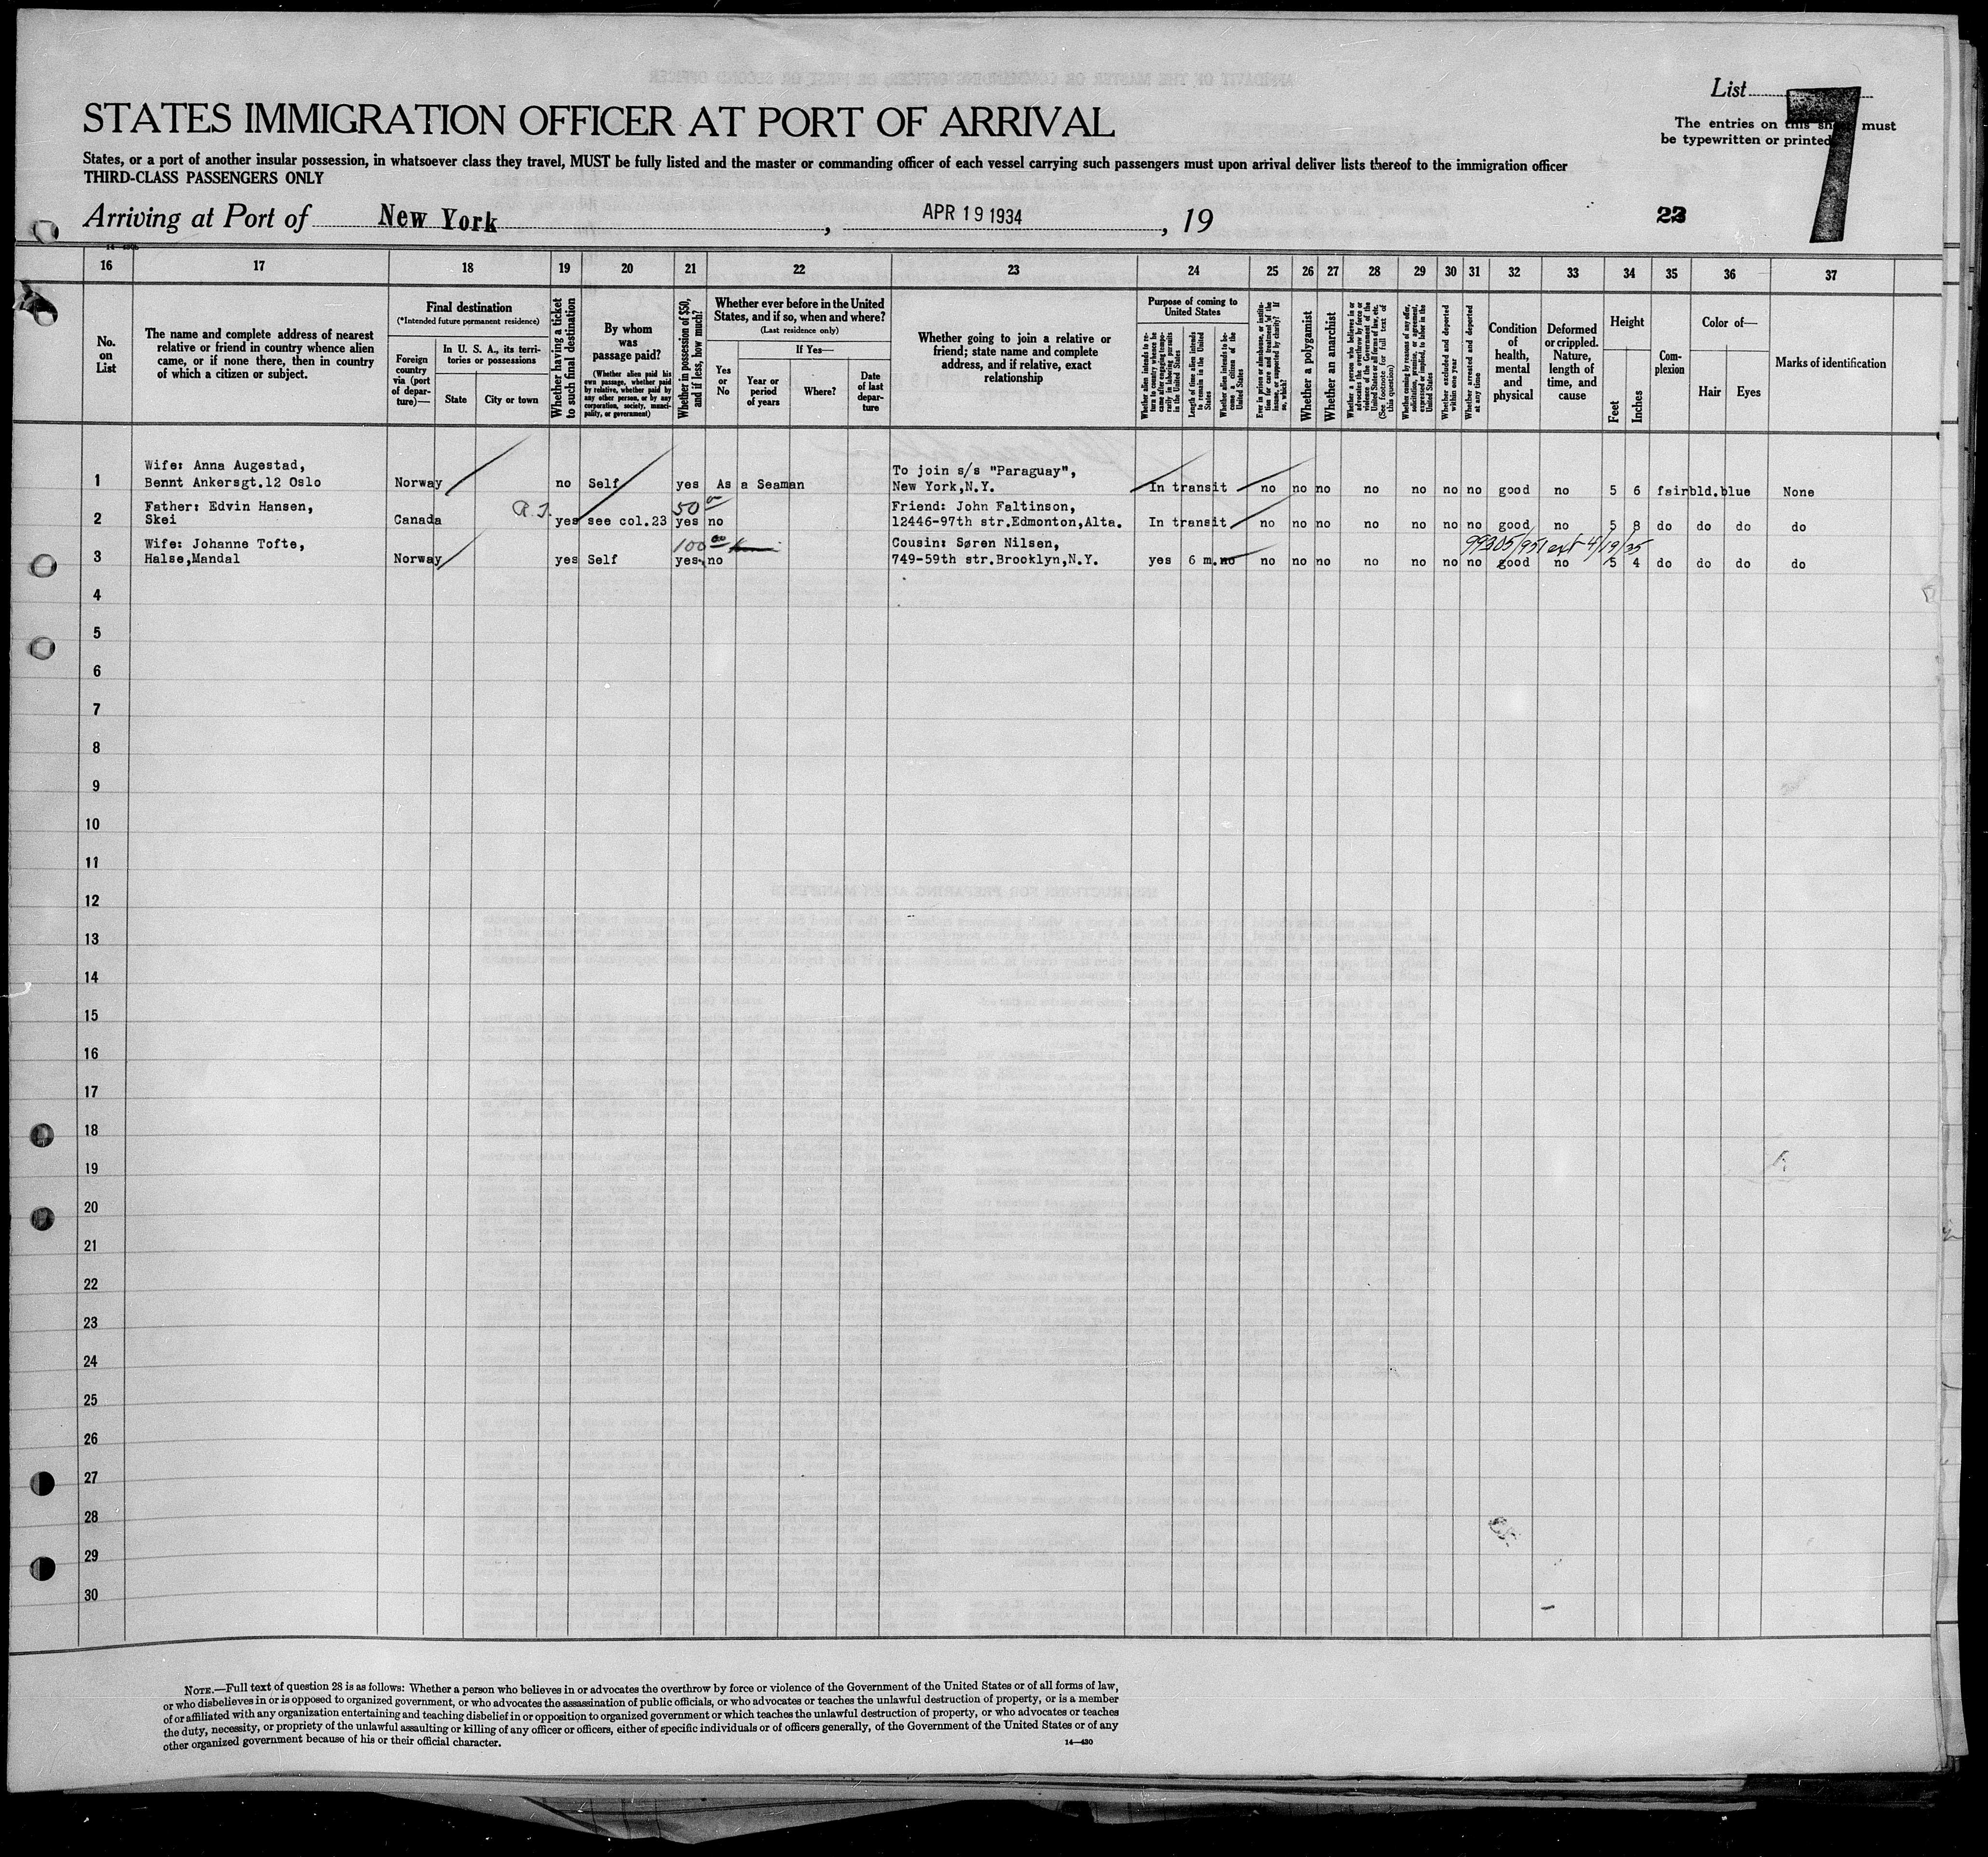 List
7
The entries on this sheet must
be typewritten or printed
STATES IMMIGRATION OFFICER AT PORT OF ARRIVAL
States, or a port of another insular possession, in whatsoever class they travel, MUST be fully listed and the master or commanding officer of each vessel carrying such passengers must upon arrival deliver lists thereof to the immigration officer
THIRD-CLASS PASSENGERS ONLY
Arriving at Port of New York, APR 19 1934, 19
16 17 18 19 20 21 22 23 24 25 26 27 28 29 30 31 32 33 34 35 36 37
No.
on
List
The name and complete address of nearest
relative or friend in country whence alien
came, or if none there, then in country
of which a citizen or subject.
Final destination
(*Intended future permanent residence)
Foreign
country
via (port
of depar-
ture)—
In U. S. A., its terri-
tories or possessions
State
City or town
Whether having a ticket
to such final destination
By whom
was
passage paid?
(Whether alien paid his
own passage, whether paid
by relative, whether paid by
any other person, or by any
corporation, society, munici-
pality, or government)
Whether in possession of $50,
and if less, how much?
Whether ever before in the United
States, and if so, when and where?
(Last residence only)
Yes
or
No
If Yes—
Year or
period
of years
Where?
Date
of last
depar-
ture
Whether going to join a relative or
friend; state name and complete
address, and if relative, exact
relationship
Purpose of coming to
United States
Whether alien intends to re-
turn to country whence he
came after engaging tempo-
rarily in laboring pursuits
in the United States
Length of time alien intends
to remain in the United
States
Whether alien intends to be-
come a citizen of the
United States
Ever in prison or almshouse, or institu-
tion for care and treatment of the
insane, or supported by charity? If
so, which?
Whether a polygamist
Whether an anarchist
Whether a person who believes in or
advocates the overthrow by force or
violence of the Government of the
United States or all forms of law, etc.
(See footnote for full text of
this question)
Whether coming by reasons of any offer,
solicitation, promise, or agreement,
expressed or implied, to labor in the
United States
Whether excluded and deported
within one year
Whether arrested and deported
at any time
Condition
of
health,
mental
and
physical
Deformed
or crippled.
Nature,
length of
time, and
cause
Height
Feet
Inches
Com-
plexion
Color of—
Hair
Eyes
Marks of identification
Wife: Anna Augestad, To join s/s "Paraguay",
1 Bennt Ankersgt.12 Oslo Norway no Self yes As a Seaman New York,N.Y. In transit no no no no no no no good no 5 6 fair bld. blue None
Father: Edvin Hansen, 50 Friend: John Faltinson,
2 Skei Canada yes see col.23 yes no 12446-97th str.Edmonton,Alta. In transit no no no no no no no good no 5 8 do do do do
Wife: Johanne Tofte, 100 Cousin: Søren Nilsen, 99305/951 ext 4/19/35
3 Halse,Mandal Norway yes Self yes no 749-59th str.Brooklyn,N.Y. yes 6 m. no no no no no no no no good no 5 4 do do do do
4
5
6
7
8
9
10
11
12
13
14
15
16
17
18
19
20
21
22
23
24
25
26
27
28
29
30
NOTE.—Full text of question 28 is as follows: Whether a person who believes in or advocates the overthrow by force or violence of the Government of the United States or of all forms of law,
or who disbelieves in or is opposed to organized government, or who advocates the assassination of public officials, or who advocates or teaches the unlawful destruction of property, or is a member
of or affiliated with any organization entertaining and teaching disbelief in or opposition to organized government or which teaches the unlawful destruction of property, or who advocates or teaches
the duty, necessity, or propriety of the unlawful assaulting or killing of any officer or officers, either of specific individuals or of officers generally, of the Government of the United States or of any
other organized government because of his or their official character.
14—430